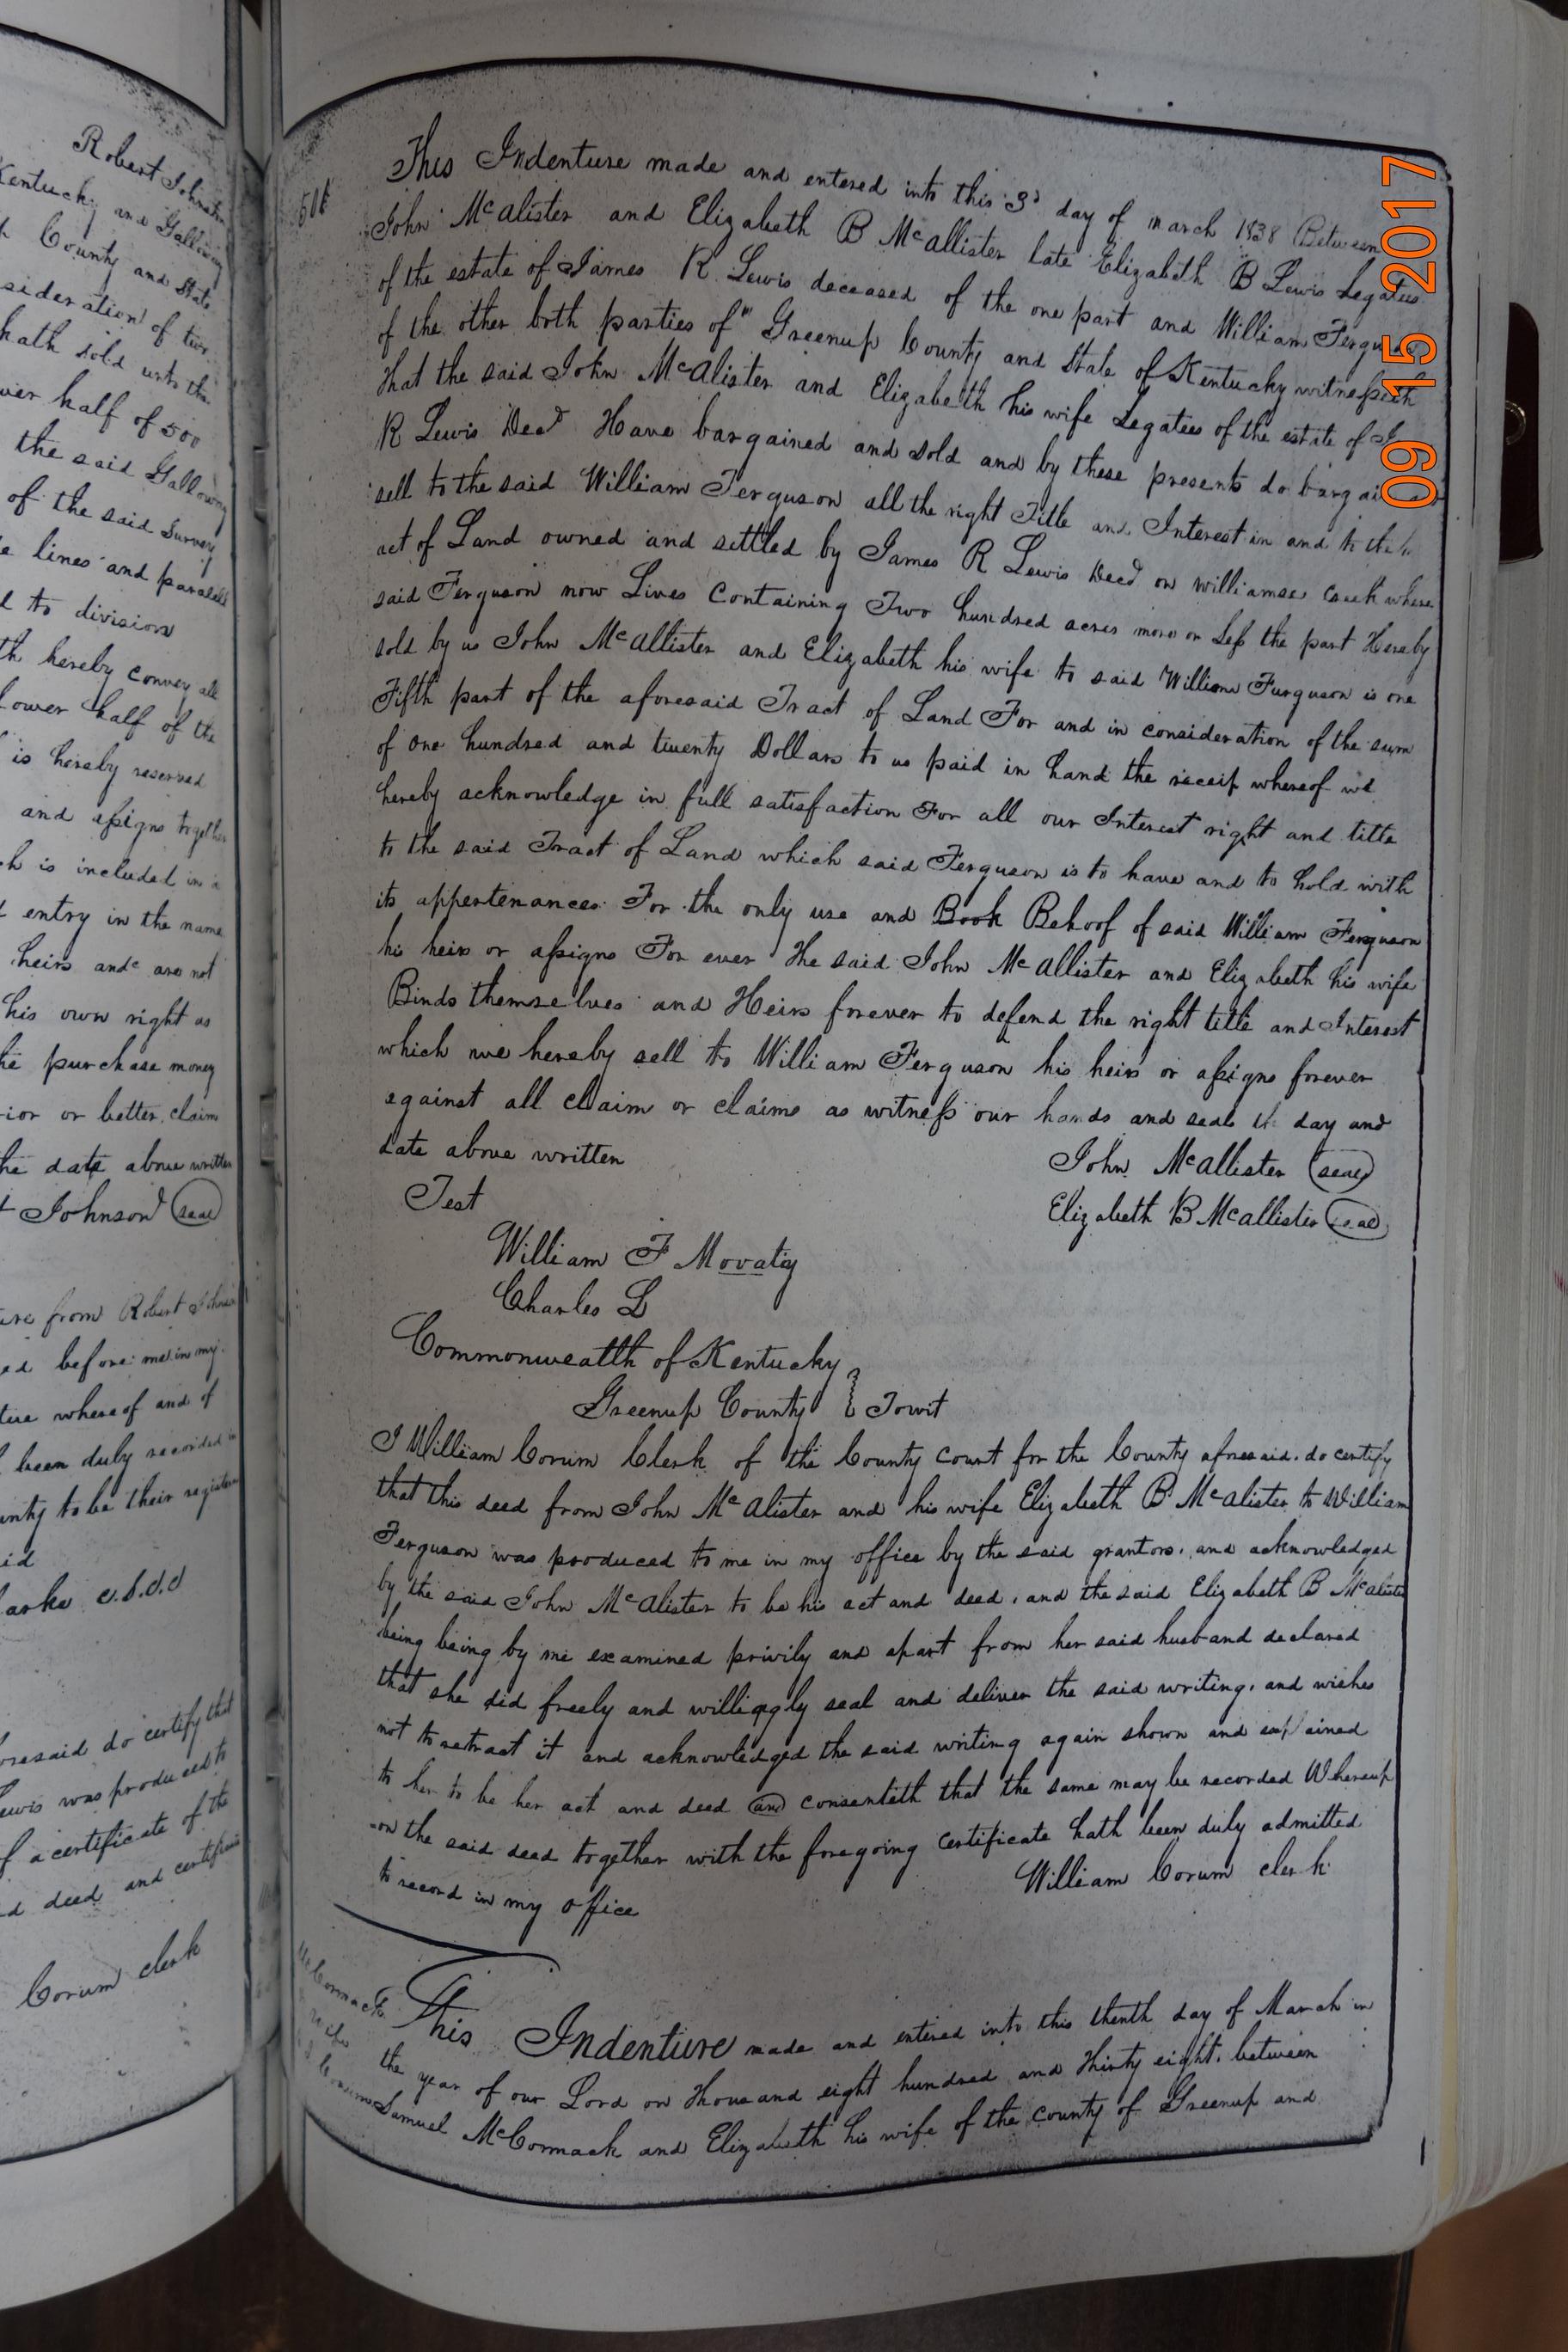 Robert Johnston
Kentucky and Galloway
County and State
sideration of two
hath sold unto the
wer half of 500
the said Galloway
of the said Survey
e lines and parallel
d to division
th hereby convey all
Lower half of the
is hereby reserved
and assigns together
ch is included in a
d entry in the name
heirs andc are not
his own right as
he purchase money
rior or better claim
he date above written
t Johnson seal
ure from Robert Johnson
ed before me in my
ture whereof and of
been duly recorded in
unty to be their register
id
larke c.b.d.d
oresaid do certify that
ewis was produced to
f a certificate of the
d deed and certificate
Corum clerk
This Indenture made and entered into this 3d day of march 1838 Between
John McAlister and Elizabeth B McAllister late Elizabeth B Lewis Legatees
of the estate of James R Lewis deceased of the one part and William Ferguson
of the other both parties of Greenup County and State of Kentucky witnesseth
that the said John McAlister and Elizabeth his wife Legatees of the estate of J
R Lewis Decd Have bargained and sold and by these presents do bargain
sell to the said William Ferguson all the right Title and Interest in and to the tr
act of Land owned and settled by James R Lewis Decd on williams creek where
said Ferguson now Lives Containing Two hundred acres more or Less the part Hereby
sold by us John McAllister and Elizabeth his wife to said William Furguson is one
Fifth part of the aforesaid Tract of Land For and in consideration of the sum
of one hundred and twenty Dollars to us paid in hand the receip whereof we
hereby acknowledge in full satisfaction For all our Interest right and title
to the said Tract of Land which said Ferguson is to have and to hold with
its appertenances For the only use and Book Behoof of said William Ferguson
his heirs or assigns For ever The said John McAllister and Elizabeth his wife
Binds themselves and Heirs forever to defend the right title and Interest
which we hereby sell to William Ferguson his heirs or assigns forever
against all claim or claims as witness our hands and seals the day and
date above written John McAllister seal
Test Elizabeth B McAllister seal
William F Movatig
Charles L
Commonwealth of Kentucky
Greenup County } Towit
I William Corum Clerk of the County Court for the County aforesaid do certify
that this deed from John McAlister and his wife Elizabeth B McAlister to William
Ferguson was produced to me in my office by the said grantors and acknowledged
by the said John McAlister to be his act and deed, and the said Elizabeth B McAlister
being being by me examined privily and apart from her said husband declared
that she did freely and williggly seal and deliver the said writing, and wishes
not to retract it and acknowledged the said writing again shown and explained
to her to be her act and deed and consenteth that the same may be recorded Whereup
-on the said deed together with the foregoing certificate hath been duly admitted
to record in my office William Corum clerk
McCormack
This Indenture made and entered into this thenth day of March in
the year of our Lord on thousand eight hundred and Thirty eight, between
Samuel McCormack and Elizabeth his wife of the county of Greenup and
09 15 2017